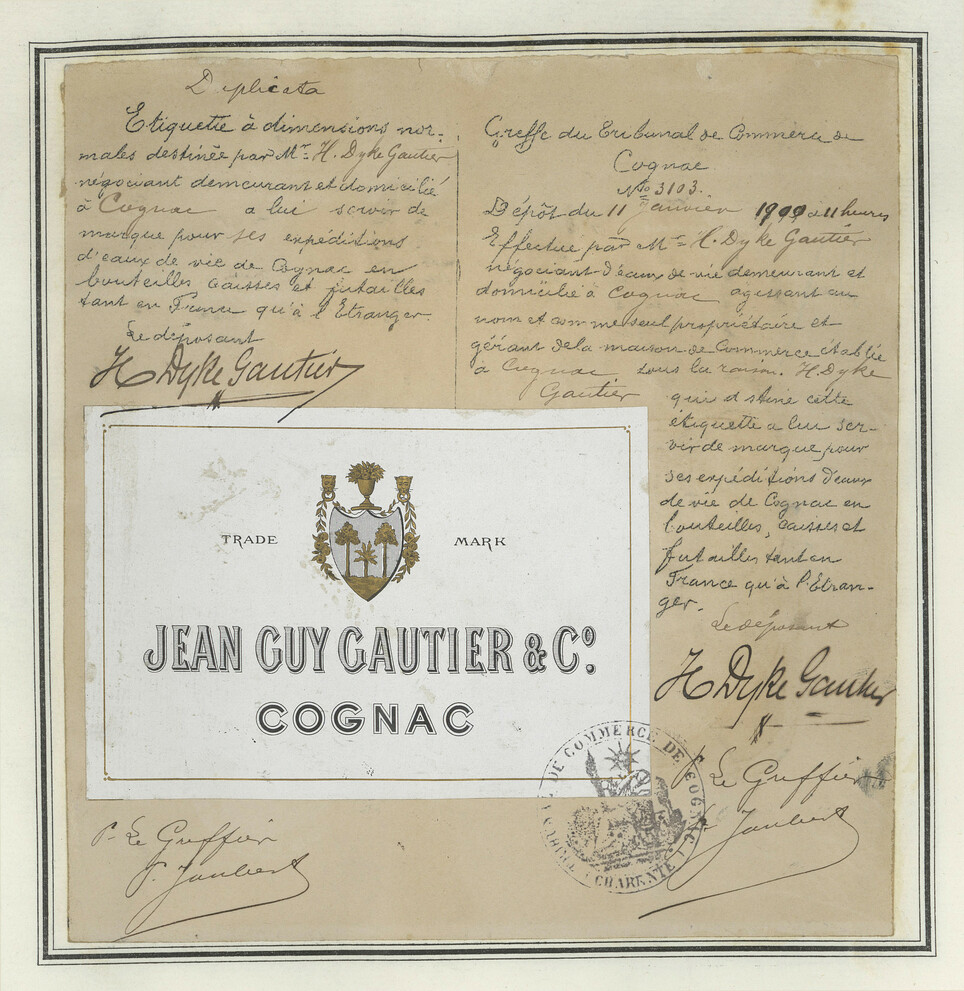 Duplicata
Etiquette à dimensions nor-
males destinée par Mr. H. Dyke Gautier
négociant demeurant et domicilié
à Cognac a lui servir de
marque pour ses expéditions
d'eaux de vie de Cognac en
bouteilles caisses et futailles
tant en France qu'à l'Etranger.
Le déposant
H Dyke Gautier
Greffe du Tribunal de Commerce de
Cognac
No 3103.
Dépôt du 11 Janvier à 11 heures
Effectué par Mr H. Dyke Gautier
négociant d'eaux de vie demeurant et
domicilié à Cognac agissant au
nom et comme seul propriétaire et
gérant de la maison de Commerce établie
à Cognac sous la raison. H. Dyke
Gautier
qui d stine cette
étiquette a lui ser-
vir de marque pour
ses expéditions d'eaux
de vie de Cognac en
bouteilles, caisses et
futailles tant en
France qu'à l'Etran-
ger.
Le déposant
H Dyke Gautier
TRADE MARK
JEAN GUY GAUTIER & Co.
COGNAC
DE COMMERCE DE COGNAC
CHARENTE
P. Le Greffier
Joubert
P. Le Greffier
Joubert